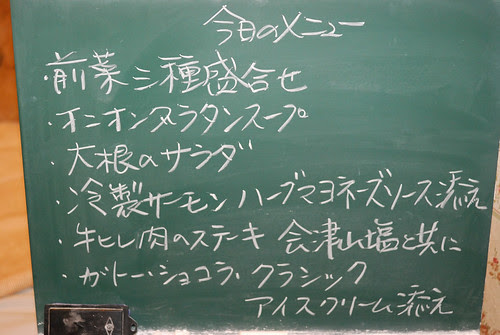 今日のメニュー
・前菜三種盛合せ
・オニオングラタンスープ
・大根のサラダ
・冷製サーモン ハーブマヨネーズソース添え
・牛ヒレ肉のステーキ 会津山塩と共に
・ガトー・ショコラ・クラシック
アイスクリーム添え